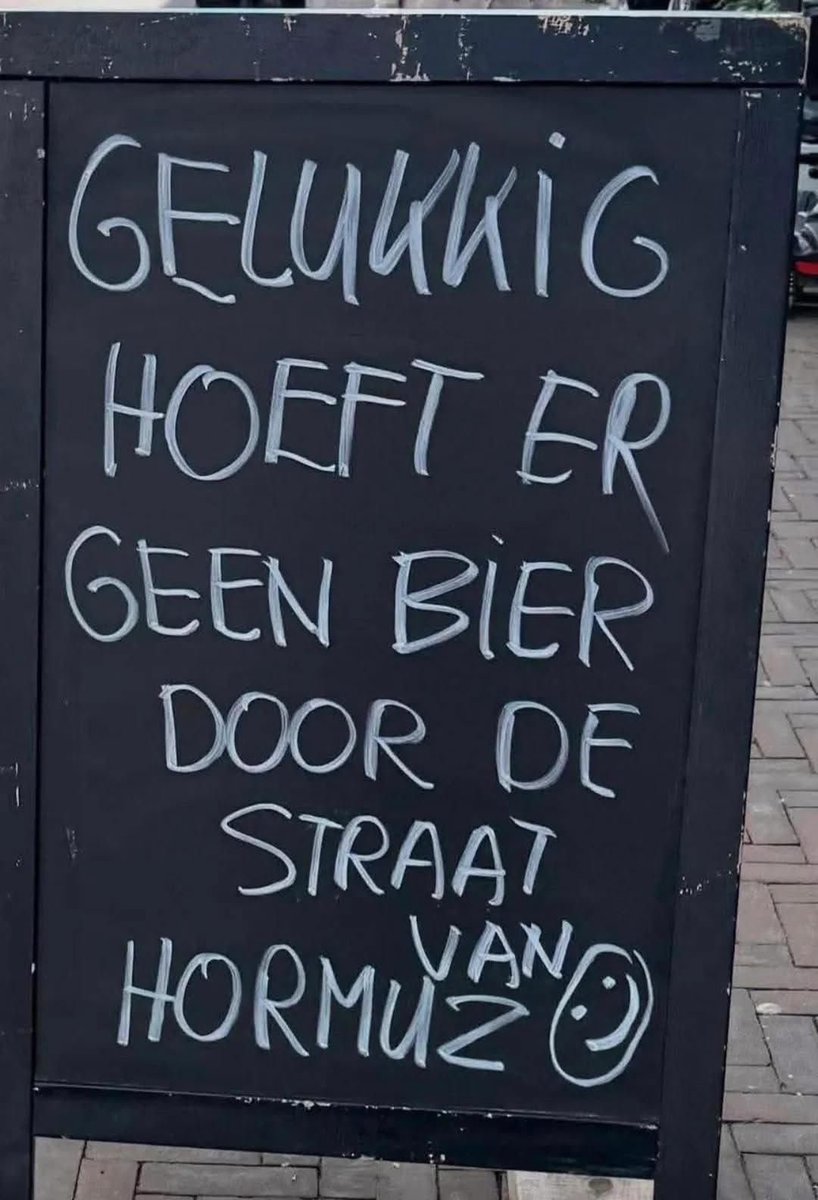 GELUKKiG
HOEFT ER
GEEN BiER
DOOR DE
STRAAT
VAN
HORMUZ